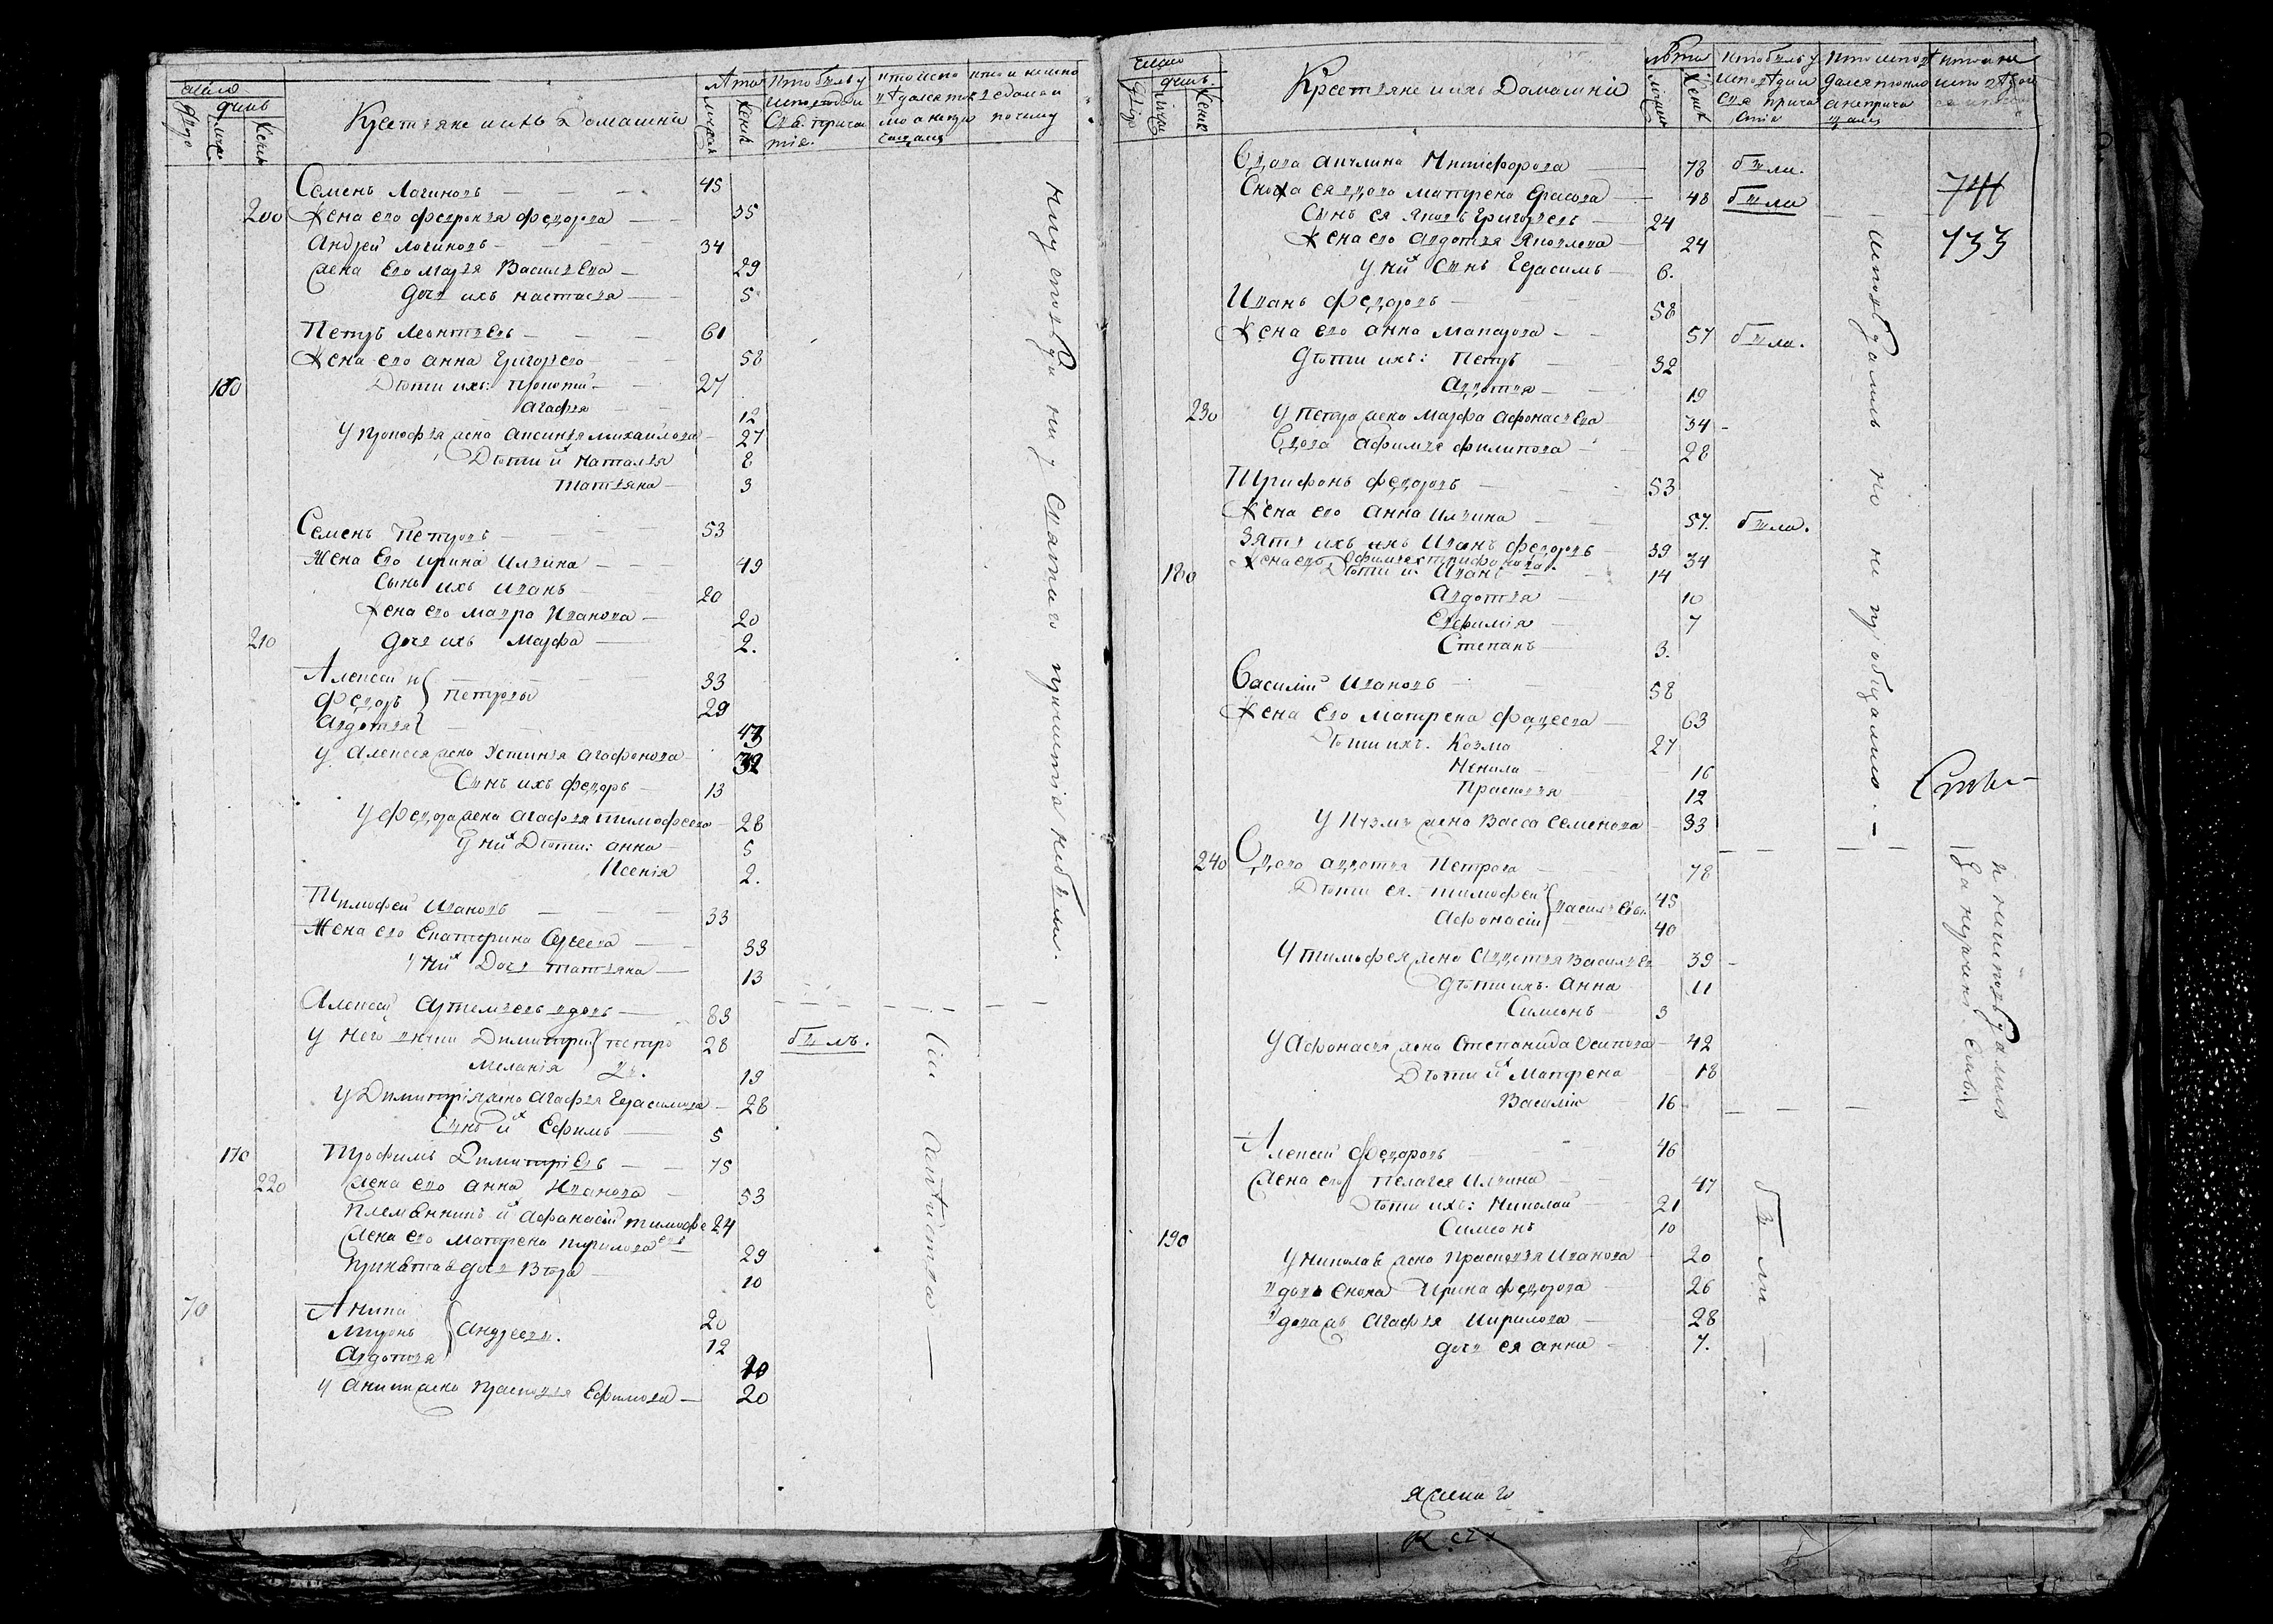 число
дворовъ
душъ
мужск
женск
Крестьяне и ихъ Домашніи
Лѣта
мужск
женск
кто былъ у исповѣди и Св. причастія.
Семенъ Логиновъ — 45
200 Жена его Февронья Федорова — 35
Андрей Логиновъ — 34
Жена Его Марья Васильева — 29
Дочь ихъ Настасья — 5
Петръ Леонтьевъ — 61
Жена его Анна Григорьева — 58
160 Дѣти ихъ: Прокофій — 27
Агафья — 12
У Прокофья жена Аксинья Михайлова — 27
Дѣти ихъ Наталья 8
Татьяна — 3
Семенъ Петровъ — 53
Жена Его Ирина Ильина — 49
Сынъ ихъ Иванъ — 20
Жена его Мавра Иванова — 20
210 Дочь ихъ Марфа — 2.
Алексѣй и 33
Федоръ } Петровы 29
Авдотья
У Алексея жена Устинья Агафонова 32
Сынъ ихъ Федоръ — 13
У Федора жена Агафья Тимофеева — 28
У них Дѣти: Анна — 5
Ксенія 2.
Тимофей Ивановъ — 33
Жена его Екатерина Сергеева — 33
У них Дочь Татьяна — 13
Алексѣй Артемьевъ вдовъ — 83
У него внуки Димитрій } петро 28 былъ.
Меланія 19
У Димитрія жена Агафья Герасимова — 28
Сынъ их Ефимъ — 5
170 Трофимъ Димитріевъ — 75
220 Жена его Анна Иванова — 53
Племянникъ их Афанасій Тимофе 24
Жена его Матрена Кирилова — 29
10
70 Аника 20
Миронъ } Андреевы. 12
Авдотья
У Аники жена Прасковья Ефимова — 20
ни у исповѣди ни у Святаго причастія небыли.
Сіи
число
дворо
душъ
мужс
женск
Крестьяне и ихъ Домашніи
Лѣта
мужск
женск
кто былъ у исповѣди и Св. причастія
Вдова Акулина Никифорова — 78 была.
Сноха ея вдова Матрена Ерасова — 48 была
744
Сынъ ея Яковъ Григорьевъ — 24
733
Жена его Авдотья Яковлева — 24
У них Сынъ Герасимъ — 6.
Иванъ Федоровъ — 58
Жена его Анна Макарова — 57 была.
Дѣти ихъ: Петръ — 32
Авдотья — 19
230 У Петра жена Марфа Афонасьева — 34
Вдова Афимья Филипова — 28
Трифонъ Федоровъ — 53
Жена его Анна Ильина — 57. была.
Зять ихъ Иванъ Федоровъ 39
Жена его Афимья Трифонова 34
180 Дѣти их Иванъ — 14
Авдотья — 10
Евфимія — 7
Степанъ — 3.
Василій Ивановъ — 58
Жена Его Матрена Фадеева — 63
Дѣти ихъ. Козма 27
Некила — 16
Прасковья — 12
У Кузмы жена Васса Семенова — 33
240 Вдова Авдотья Петрова 78
Дѣти ея. Тимофей } Васильевы 45
Афонасій 40
У Тимофея жена Авдотья Васильев 39
Дѣти ихъ. Анна 11
Симеонъ 3
У Афонасья жена Степанида Осипова — 42
Дѣти их Матрена — 18
Василій — 16
Алексѣй Федоровъ — 46
Жена его Пелагея Ильина — 47
Дѣти ихъ: Николай — 21
190 Симеонъ 10
У Николая жена Прасковья Иванова — 20
вдова Сноха Ирина Федорова — 26
вдова Агафья Кирилова — 28
дочь ея Анна — 7.
исповѣдались но не пріобщались. —
были —